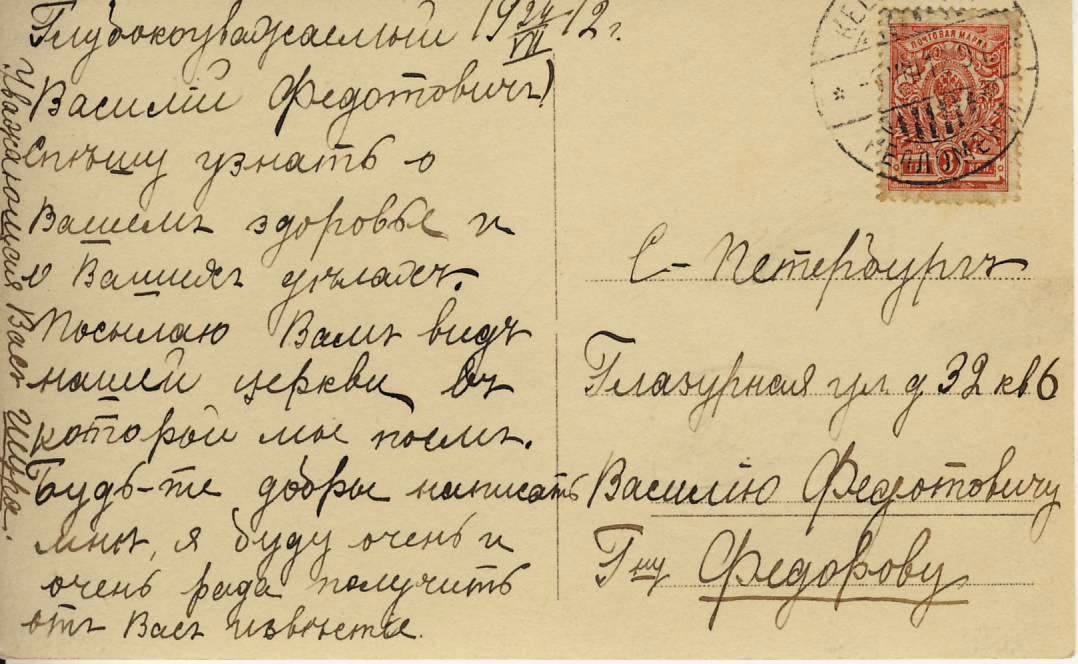 Глубокоуважаемый 19 24/VII 12 г.
Василій Федотовичъ!
Спѣшу узнать о
Вашемъ здоровье и
о Вашихъ дѣлахъ.
Посылаю Вамъ видъ
нашей церкви въ
которой мы поемъ.
Будь-те добры написать
мнѣ, я буду очень и
очень рада получить
отъ Васъ извѣстіе.
Уважающая Васъ
ПОЧТОВАЯ МАРКА
С-Петербургъ
Глазурная ул. д 32 кв 6
Василію Федотовичу
Гну Федорову